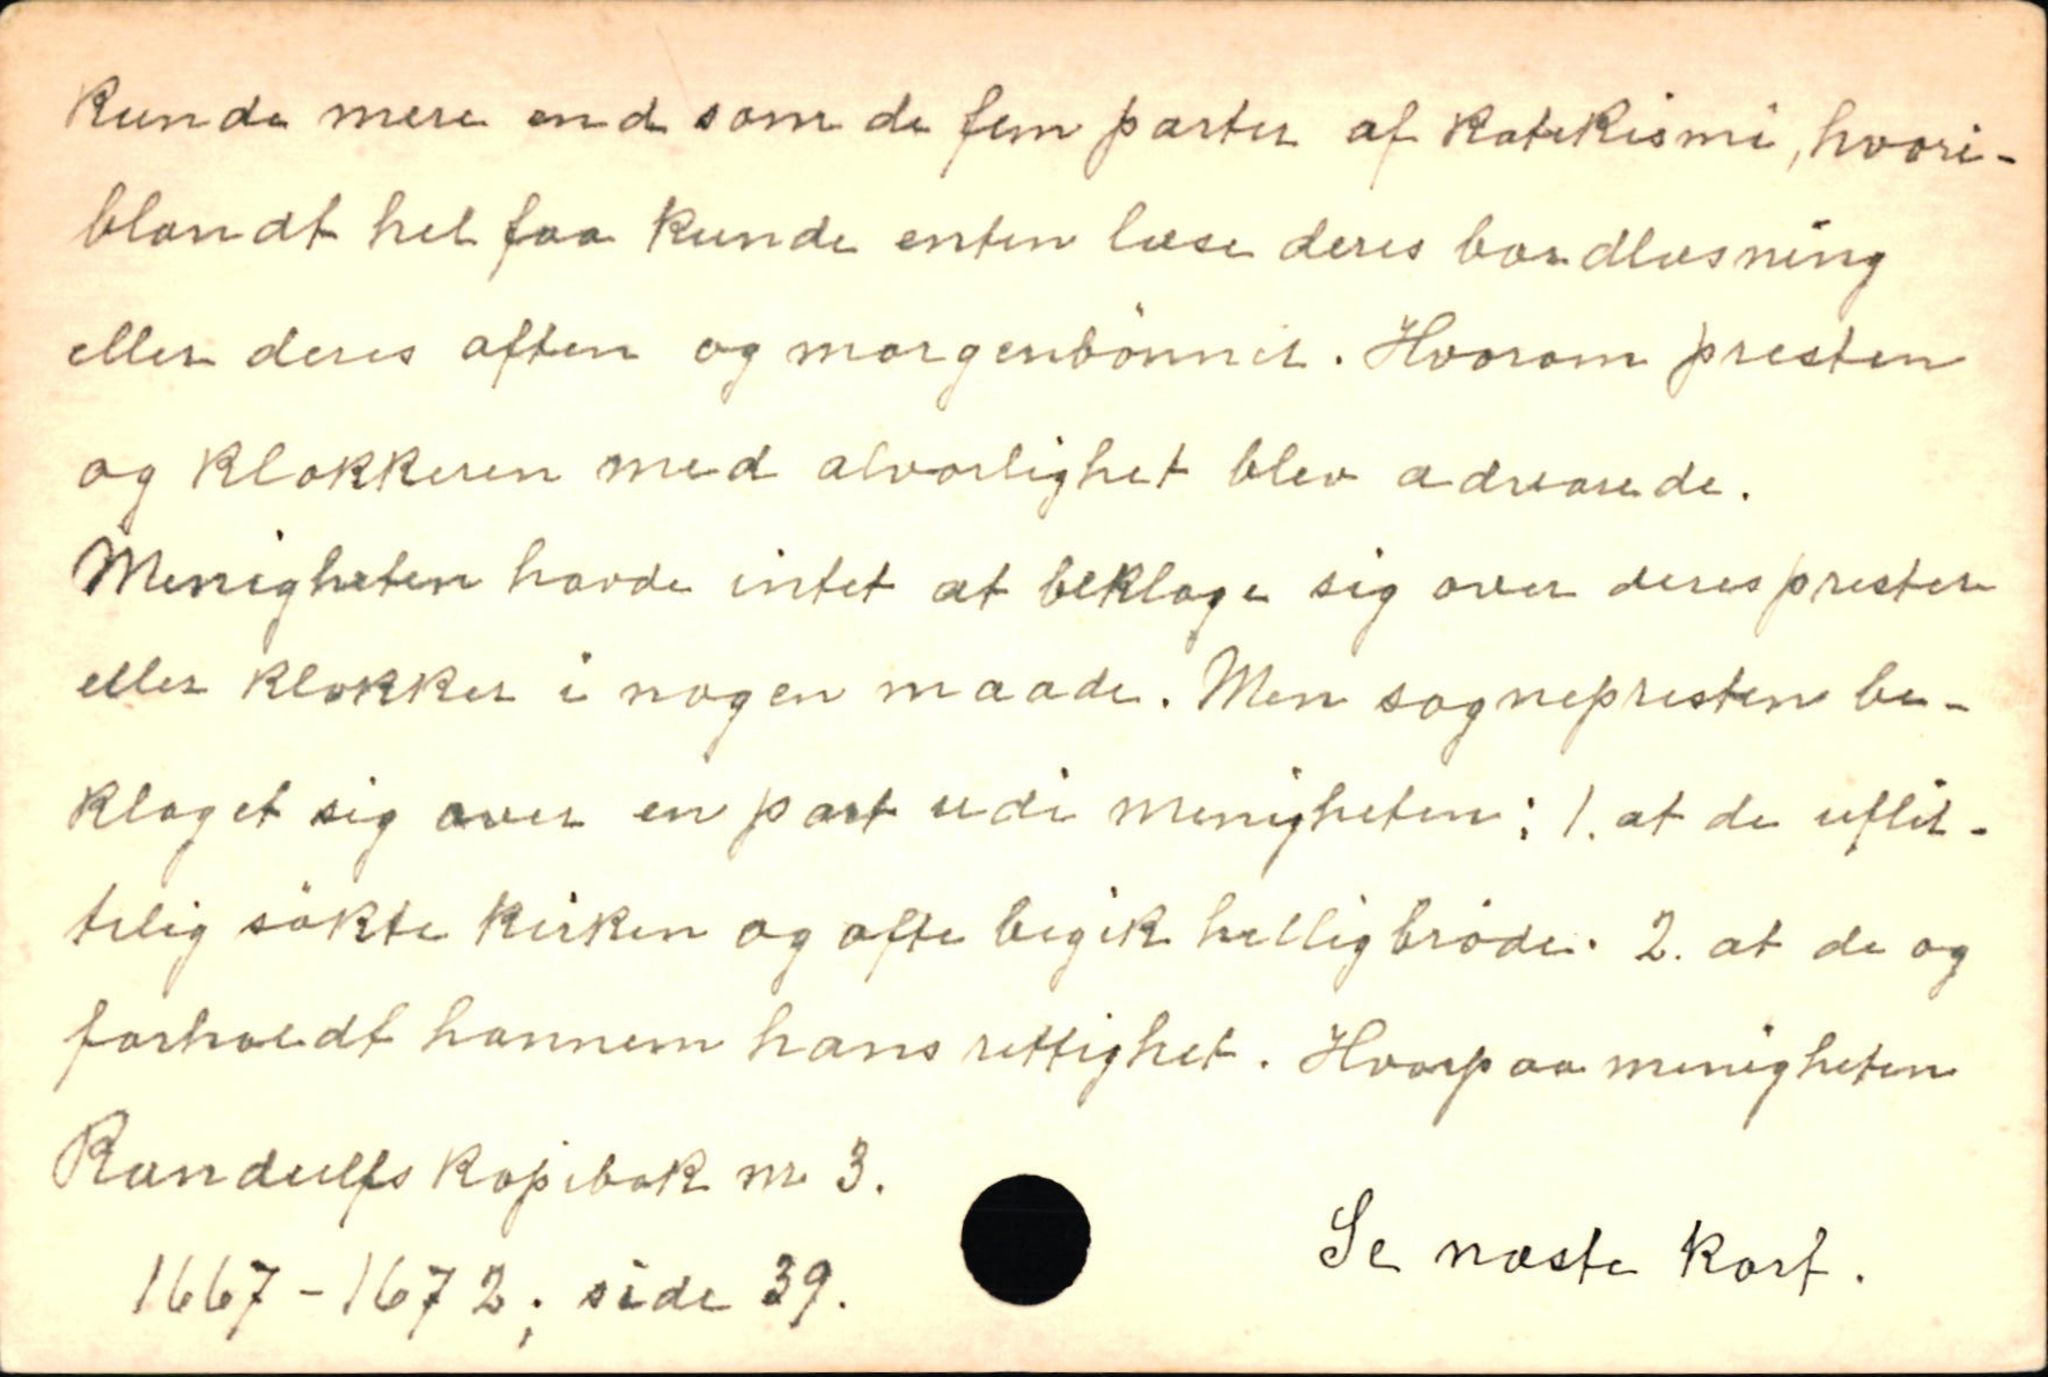 kunde mere end som de fem parter af katekismi, hvori-
blandt hel faa kunde enten læse deres bordlæsning
eller deres aften og morgenbönner. Hvorom presten
og klokkeren med alvorlighet blev advarede.
Menigheten havde intet at beklage sig over deres prester
eller klokker i nogen maade. Men sognepresten be-
klaget sig over en part udi menigheten; 1. at de uflit-
telig sökte kirken og ofte begik helligbröde. 2. at de og
forholdt hannem hans rettighet. Hvorpaa menigheten
Randulfs kopibok nr 3.
1667-1672; side 39.
Se næste kort.